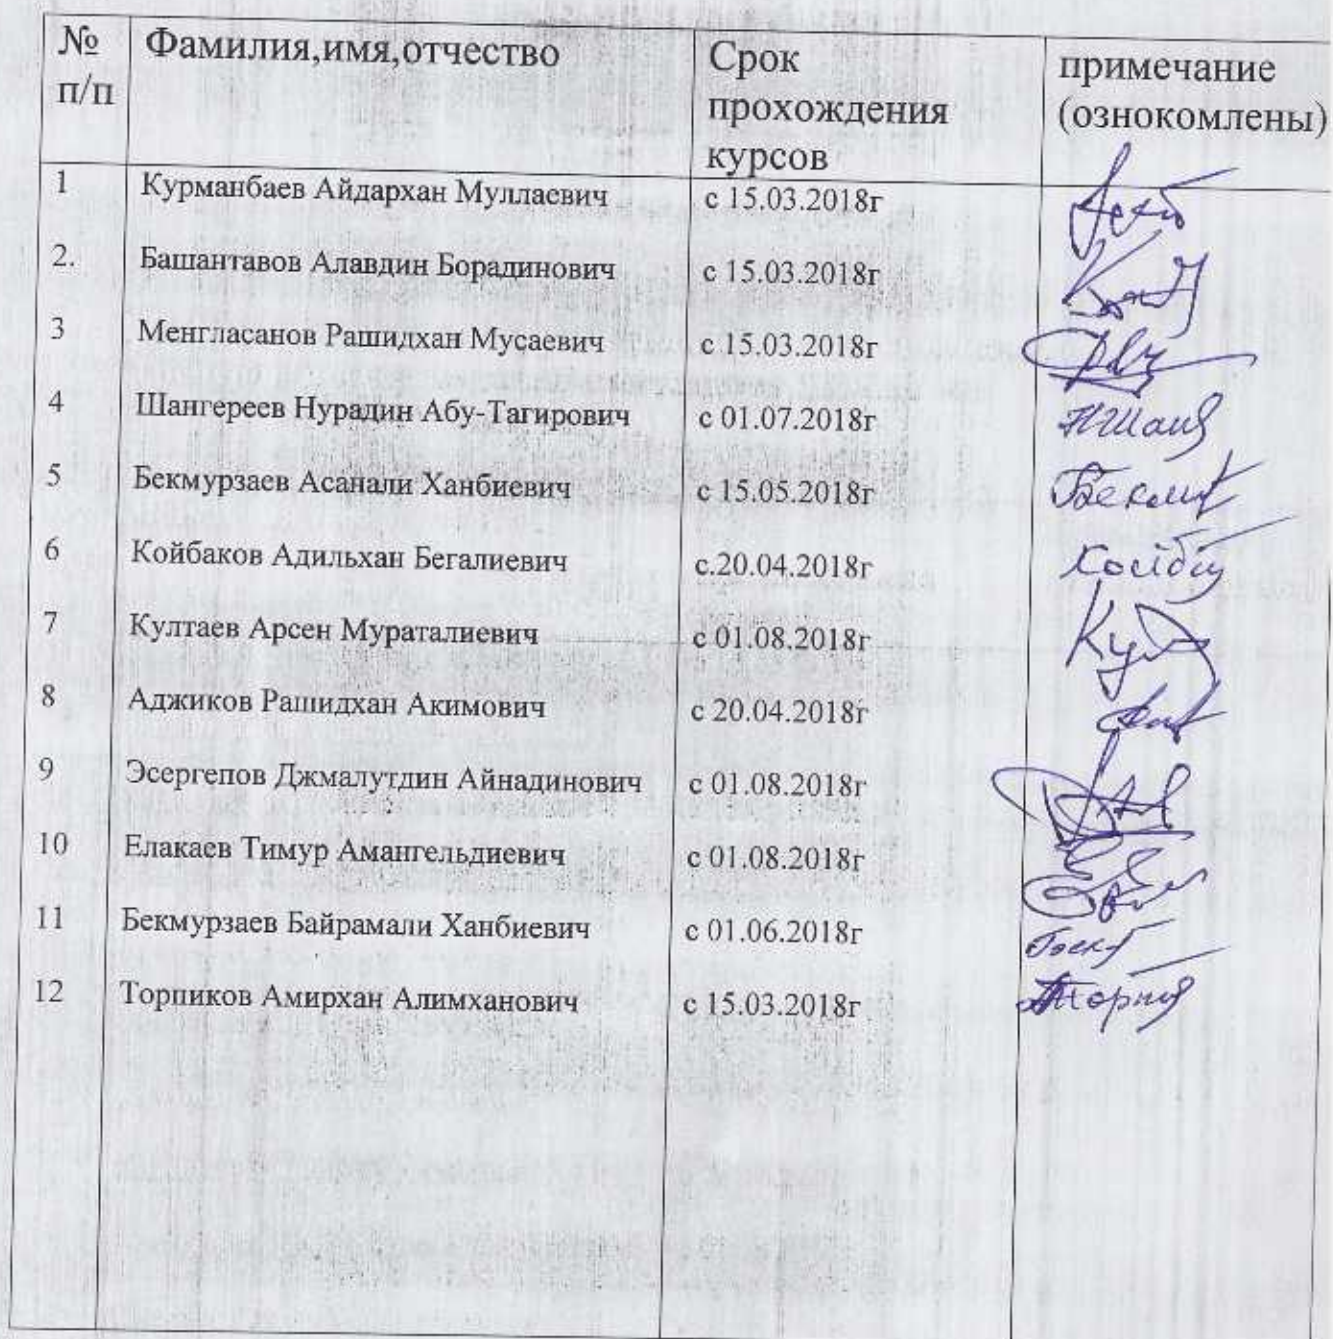 № п/п Фамилия,имя,отчество Срок прохождения курсов примечание (ознокомлены)
1 Курманбаев Айдархан Муллаевич с 15.03.2018г
2. Башантавов Алавдин Борадинович с 15.03.2018г
3 Менгласанов Рашидхан Мусаевич с 15.03.2018г
4 Шангереев Нурадин Абу-Тагирович с 01.07.2018г
5 Бекмурзаев Асанали Ханбиевич с 15.05.2018г
6 Койбаков Адильхан Бегалиевич с.20.04.2018г
7 Култаев Арсен Мураталиевич с 01.08.2018г
8 Аджиков Рашидхан Акимович с 20.04.2018г
9 Эсергепов Джмалутдин Айнадинович с 01.08.2018г
10 Елакаев Тимур Амангельдиевич с 01.08.2018г
11 Бекмурзаев Байрамали Ханбиевич с 01.06.2018г
12 Торпиков Амирхан Алимханович с 15.03.2018г